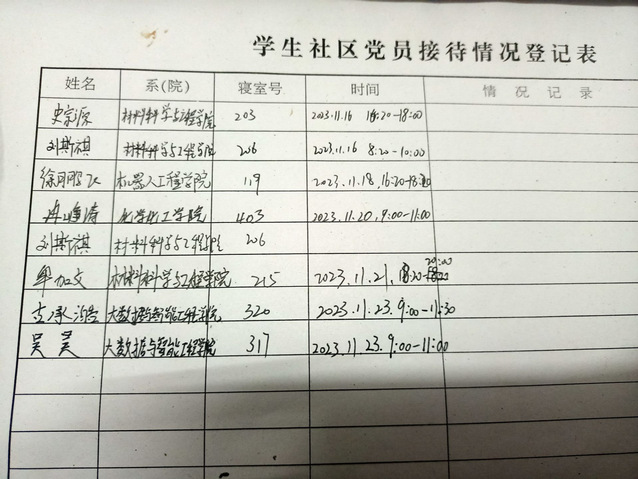 学生社区党员接待情况登记表
姓名 系(院) 寝室号 时间 情况记录
史宗源 材料科学与工程学院 203 2023.11.16 16:20-18:00
刘斯祺 材料科学与工程学院 206 2023.11.16 8:20-10:00
徐 机器人工程学院 119 2023.11.18, 16:20-18:
涛 化学化工学院 403 2023.11.20, 9:00-11:00
刘斯祺 材料科学与工程学院 206
单加文 材料科学与工程学院 215 2023.11.21, 20:00
李承 大数据与智能工程学院 320 2023.11.23.9:00-11:30
吴昊 大数据与智能工程学院 317 2023.11.23.9:00-11:00